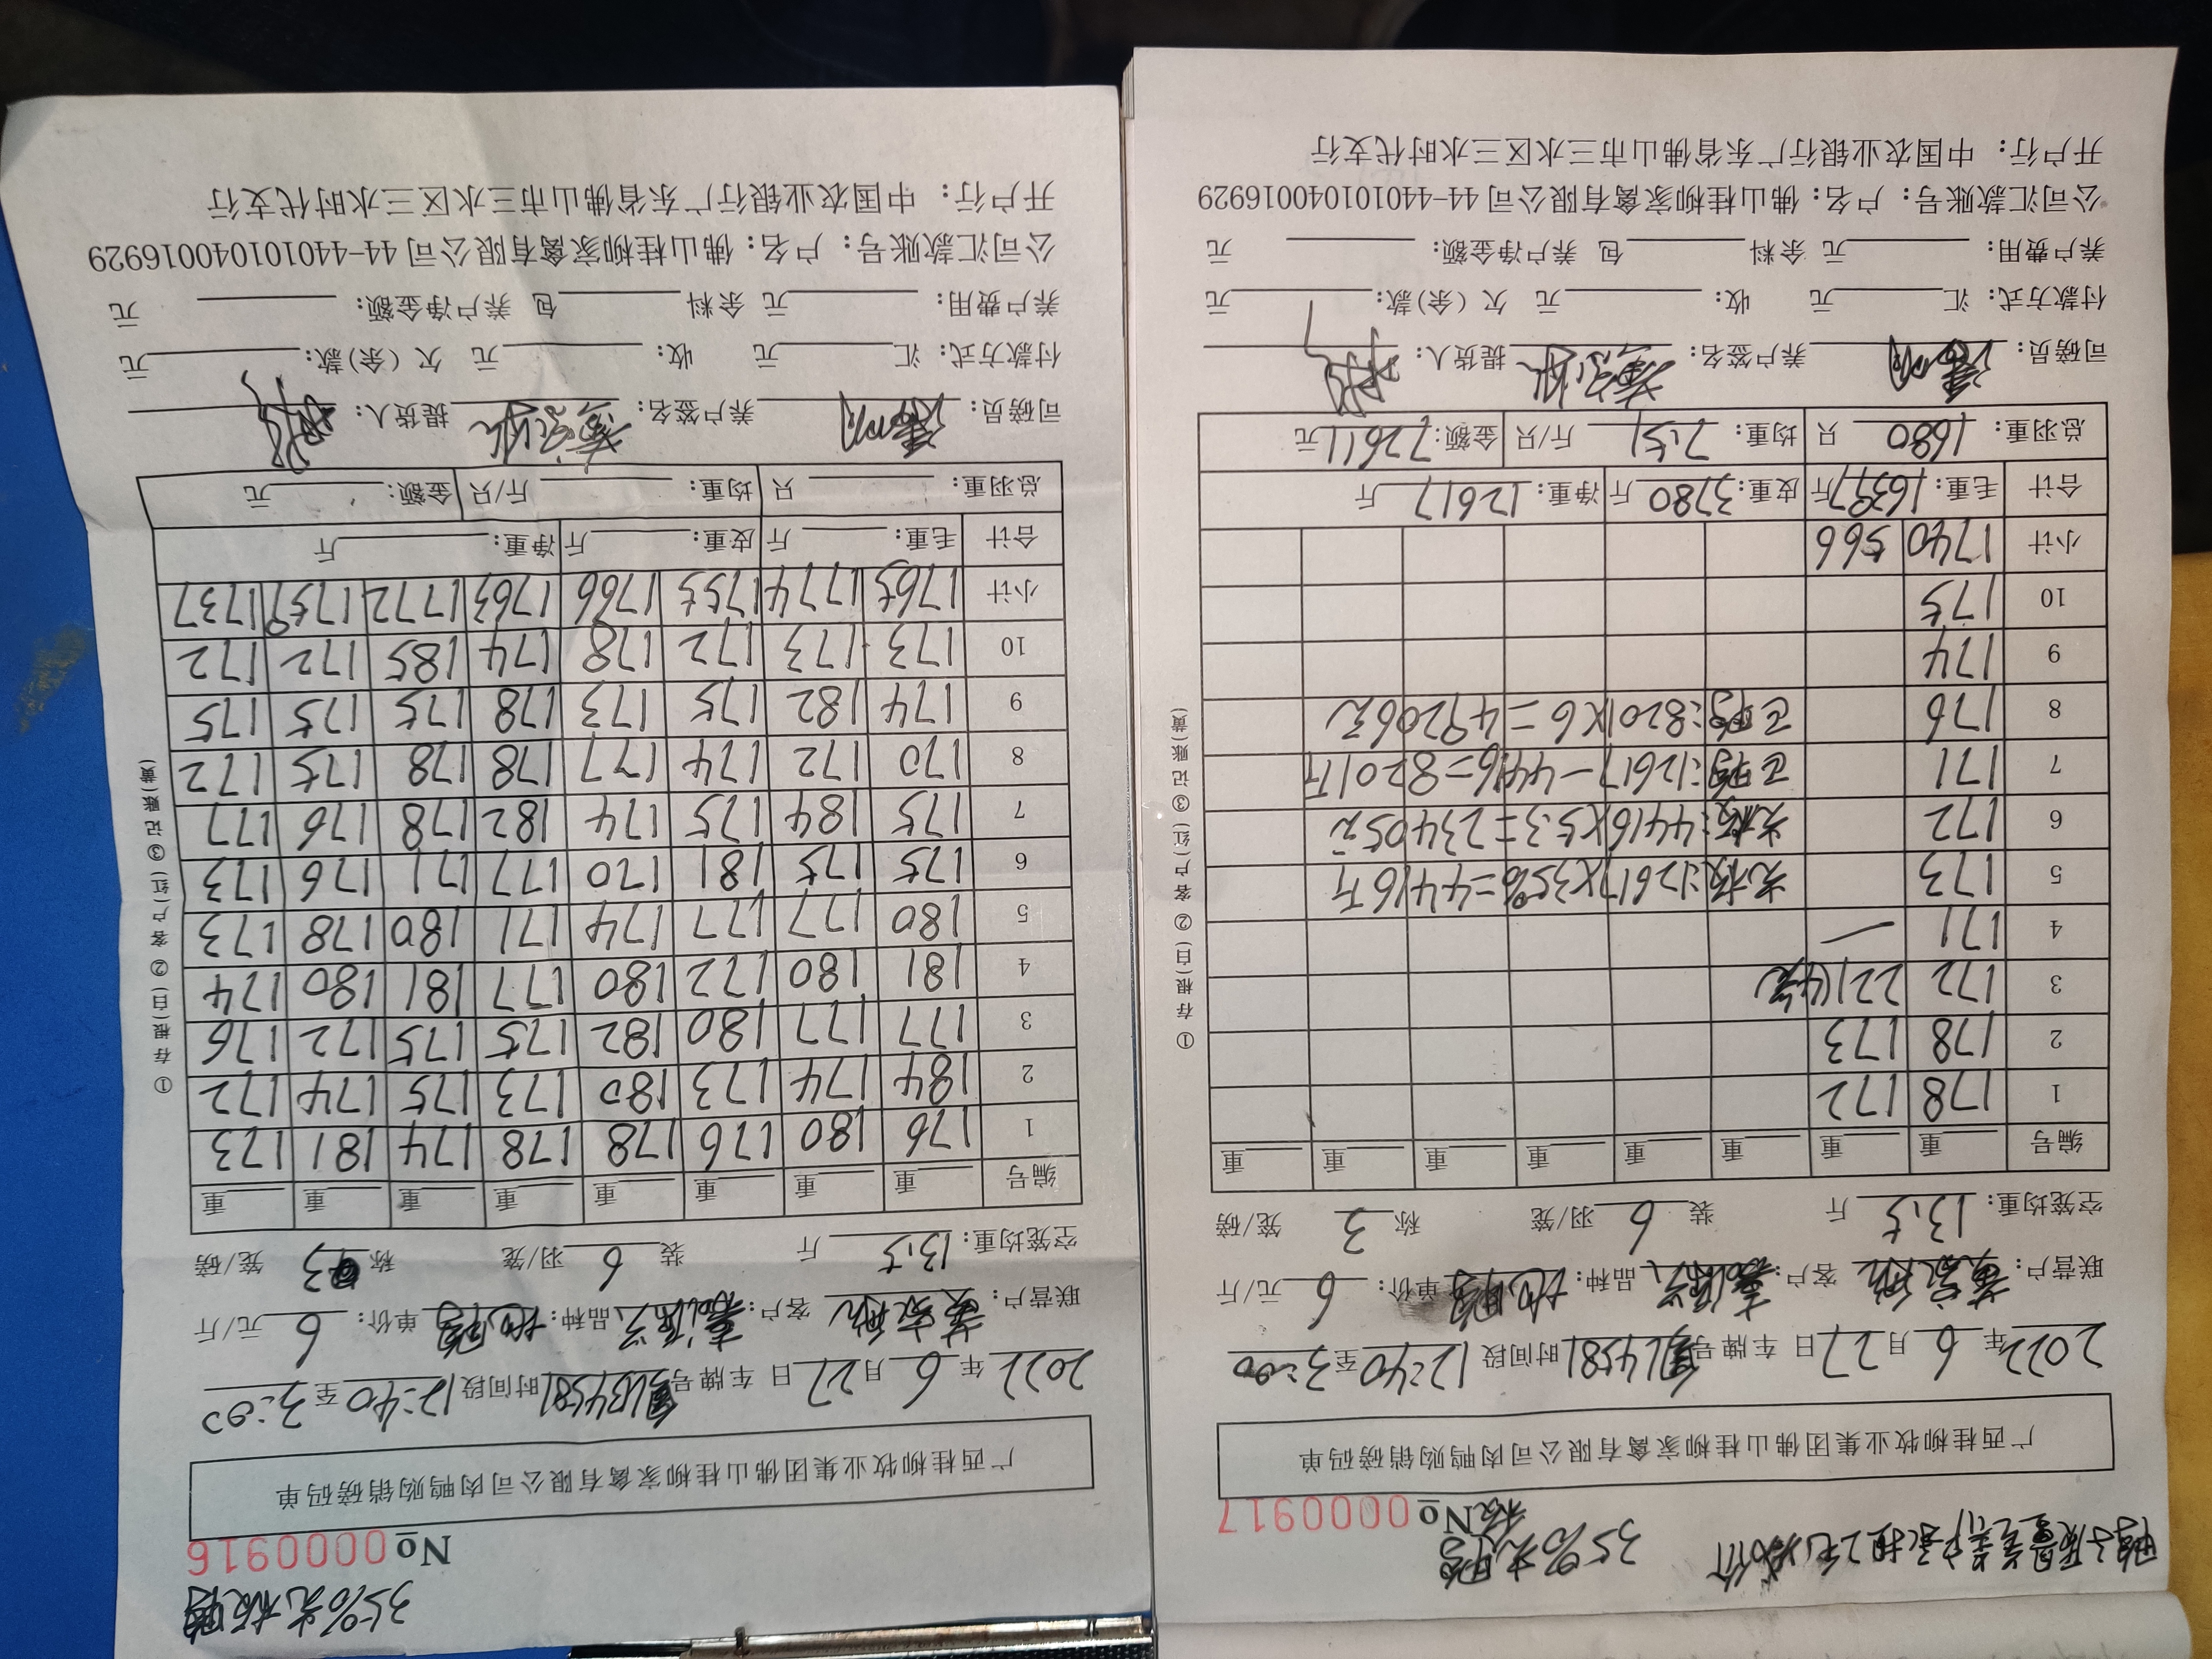 鸭子质量差养户承担2毛减价 35%光鸭
№0000917
广西桂柳牧业集团佛山桂柳家禽有限公司肉鸭购销磅码单
2022年 6月 27日 车牌号 L14581 时间段 12:40 至 3:00
联营户: 客户: 品种: 单价: 6 元/斤
空笼均重: 13.5 斤 装 6 羽/笼 称 3 笼/磅
编号 重 重 重 重 重 重 重 重
1 178 172
2 178 173
3 172 221(4笼)
4 171 一
5 173 光板:12617×35%=4416斤
6 172 光板:4416×5.3=23405元
7 171 正鸭:12617-4416=8201斤
8 176 正鸭:8201×6=49206元
9 174
10 175
小计 1740 566
合计 毛重: 16397 斤 皮重: 3780 斤 净重: 12617 斤
总羽重: 1680 只 均重: 7.51 斤/只 金额: 72611 元
司磅员: 养户签名: 提货人:
付款方式: 汇 元 收: 元 欠(余)款: 元
养户费用: 元 余料 包 养户净金额: 元
公司汇款账号: 户名: 佛山桂柳家禽有限公司 44-440101040016929
开户行: 中国农业银行广东省佛山市三水区三水时代支行
①存根(白) ②客户(红) ③记账(黄)
35%光板鸭
№0000916
广西桂柳牧业集团佛山桂柳家禽有限公司肉鸭购销磅码单
2022年 6月 27日 车牌号 时间段 12:40 至 3:00
联营户: 客户: 品种: 单价: 6 元/斤
空笼均重: 13.5 斤 装 6 羽/笼 称 3 笼/磅
编号 重 重 重 重 重 重 重 重
1 176 180 176 178 178 174 181 173
2 184 174 173 180 173 175 174 172
3 177 177 180 182 175 175 172 176
4 181 180 172 180 177 181 180 174
5 180 177 177 174 171 180 178 173
6 175 175 181 170 177 171 176 173
7 175 184 175 174 182 178 176 177
8 170 172 174 177 178 178 175 172
9 174 182 175 173 178 175 175 175
10 173 173 172 178 174 185 172 172
小计 1765 1774 1755 1766 1763 1772 1759 1737
合计 毛重: 斤 皮重: 斤 净重: 斤
总羽重: 只 均重: 斤/只 金额: 元
司磅员: 养户签名: 提货人:
付款方式: 汇 元 收: 元 欠(余)款: 元
养户费用: 元 余料 包 养户净金额: 元
公司汇款账号: 户名: 佛山桂柳家禽有限公司 44-440101040016929
开户行: 中国农业银行广东省佛山市三水区三水时代支行
①存根(白) ②客户(红) ③记账(黄)